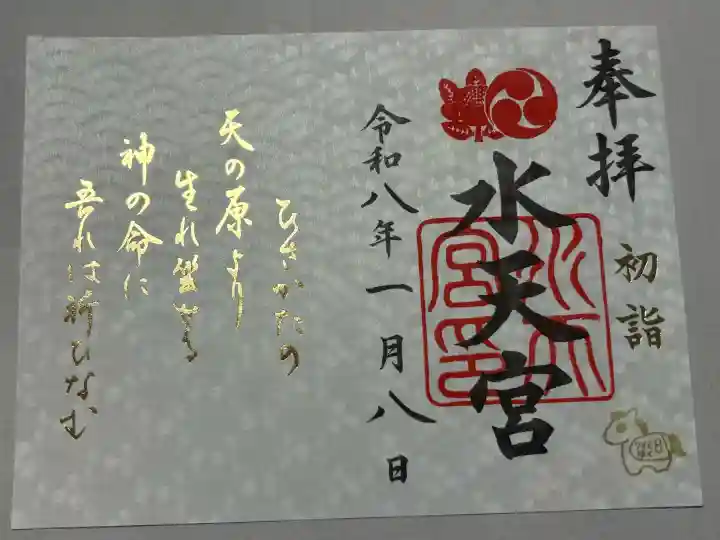 奉拝
初詣
水天宮
令和八年一月八日
ひさかたの
天の原より
生れ坐せる
神の命に
吾れは祈ひなむ